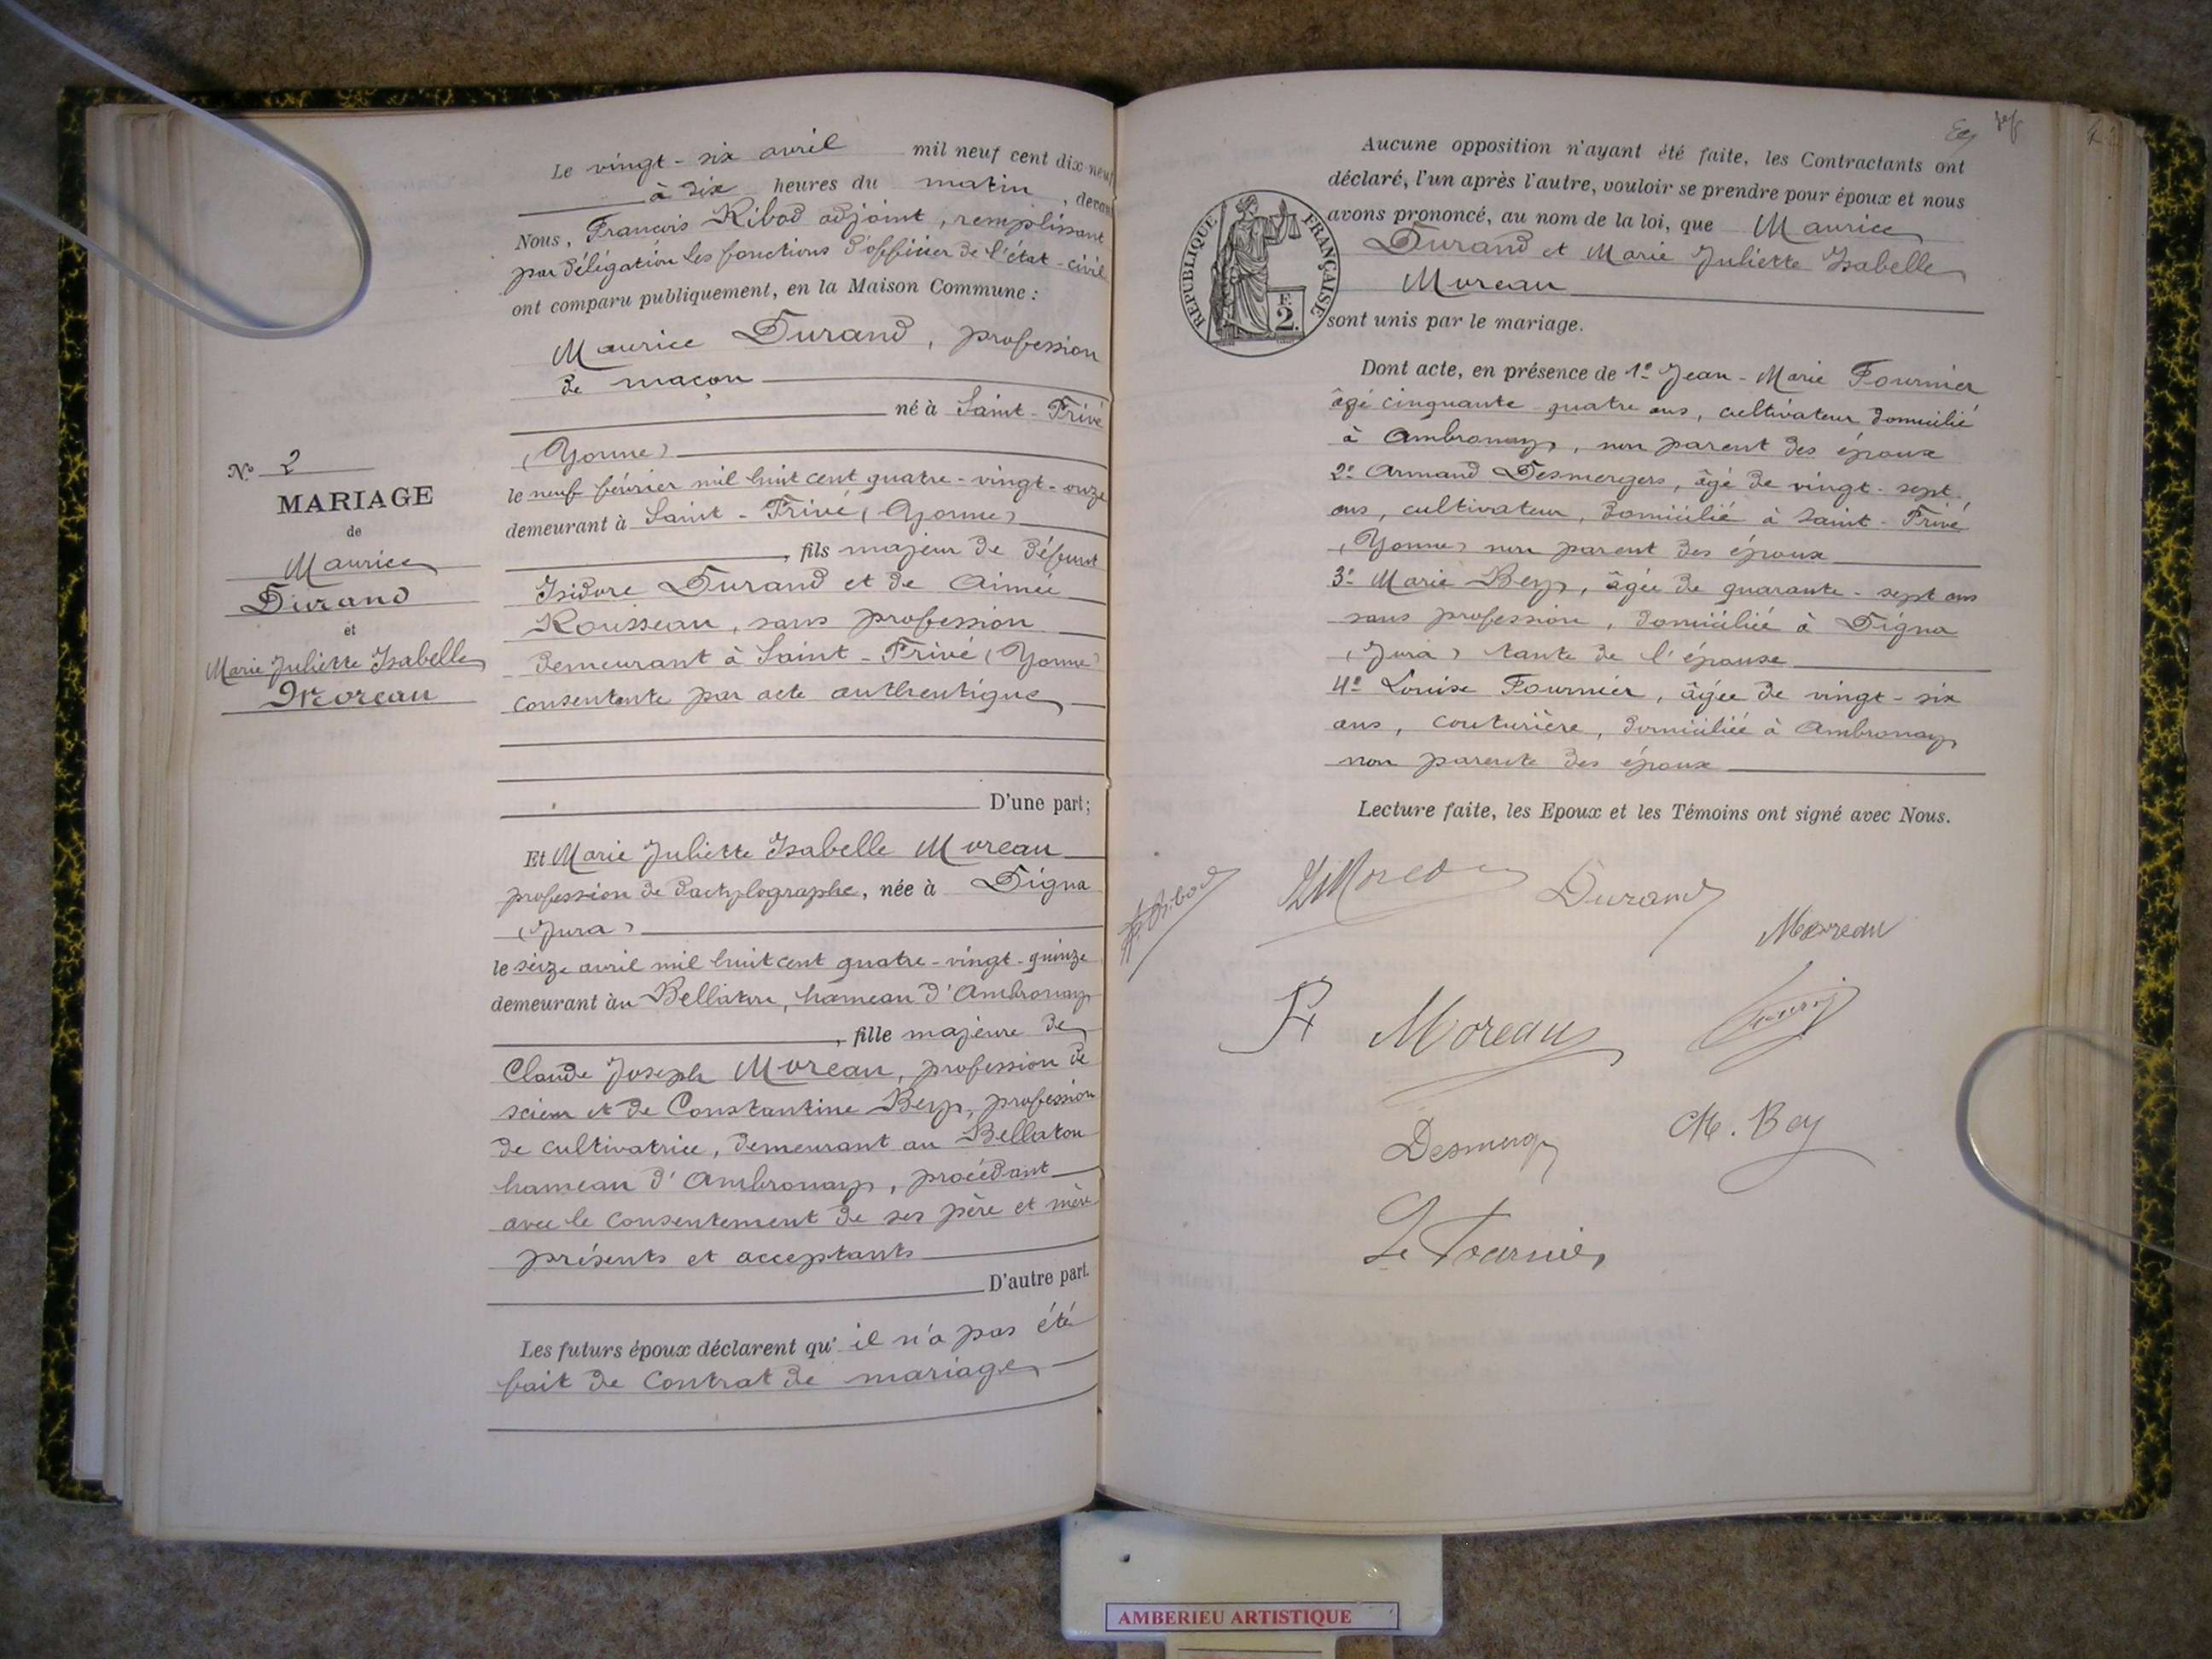 Le vingt-six avril mil neuf cent dix-neuf
à dix heures du matin, devan
Nous, François Ribod adjoint, remplissant
par délégation les fonctions d'officier de l'état-civil
ont comparu publiquement, en la Maison Commune :
Maurice Durand, profession
de maçon
né à Saint-Privé
(Yonne)
le neuf février mil huit cent quatre-vingt-onze
demeurant à Saint-Privé (Yonne)
, fils majeur de défunt
Isidore Durand et de Aimée
Rousseau, sans profession
demeurant à Saint-Privé (Yonne)
consentante par acte authentique
D'une part;
N° 2
MARIAGE
de
Maurice
Durand
et
Marie Juliette Isabelle
Moreau
Et Marie Juliette Isabelle Moreau
profession de dactylographe, née à Digna
(Jura)
le seize avril mil huit cent quatre-vingt-quinze
demeurant àu Bellaton, hameau d'Ambronay
, fille majeure de
Claude Joseph Moreau, profession de
scieur et de Constantine Bey, profession
de cultivatrice, demeurant au Bellaton
hameau d'Ambronay, procédant
avec le consentement de ses père et mère
présents et acceptants
D'autre part.
Les futurs époux déclarent qu'il n'a pas été
fait de contrat de mariage
Aucune opposition n'ayant été faite, les Contractants ont
déclaré, l'un après l'autre, vouloir se prendre pour époux et nous
avons prononcé, au nom de la loi, que Maurice
Durand et Marie Juliette Isabelle
Moreau
sont unis par le mariage.
REPUBLIQUE FRANÇAISE
F.
2.
Dont acte, en présence de 1° Jean-Marie Fournier
âgé cinquante quatre ans, cultivateur domicilié
à Ambronay, non parent des époux
2° Armand Desmergers, âgé de vingt-sept
ans, cultivateur, domicilié à Saint-Privé
(Yonne) non parent des époux
3° Marie Bey, âgée de quarante-sept ans
sans profession, domiciliée à Digna
(Jura) tante de l'épouse
4° Louise Fournier, âgée de vingt-six
ans, couturière, domiciliée à Ambronay
non parente des époux
Lecture faite, les Epoux et les Témoins ont signé avec Nous.
Durand
Moreau
F. Ribod
Moreau
M. Bey
Fournier
AMBERIEU ARTISTIQUE